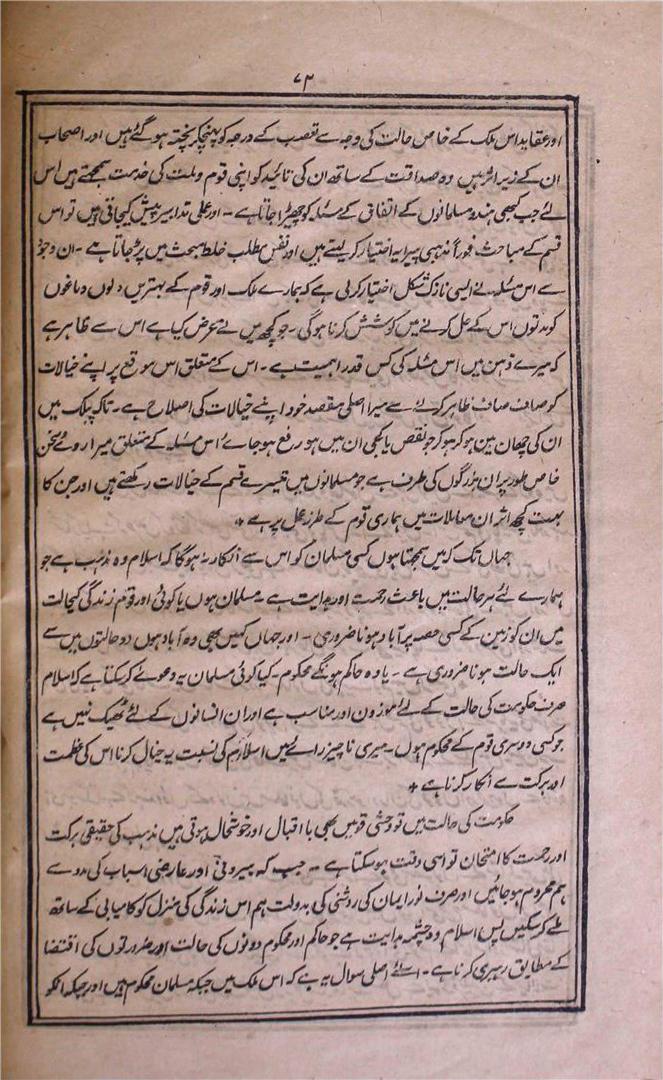 ۷۲
اور عقاید اس ملک کے خاص حالت کی وجہ سے تعصب کے درجہ کو پہنچکر پختہ ہو گئے ہیں اور اصحاب
ان کے زیر اثر ہیں وہ صداقت کے ساتھ ان کی تائید کو اپنی قوم و ملت کی خدمت سمجھتے ہیں اس
لئے جب کبھی ہندو مسلمانوں کے اتفاق کے مسئلہ کو چھیڑا جاتا ہے ۔ اور عملی تدابیر پیش کیجاتی ہیں تو اس
قسم کے مباحث فوراً مذہبی پیرایہ اختیار کر لیتے ہیں اور نفس مطلب خلط مبحث میں پڑ جاتا ہے ۔ ان وجوہ
سے اس مسئلہ نے ایسی نازک شکل اختیار کر لی ہے کہ ہمارے ملک اور قوم کے بہترین دلوں دماغوں
کو مدتوں اس کے حل کرنے میں کوشش کرنا ہوگی ۔ جو کچھ میں نے عرض کیا ہے اس سے ظاہر ہے
کہ میرے ذہن میں اس مسئلہ کی کس قدر اہمیت ہے ۔ اس کے متعلق اس موقع پر اپنے خیالات
کو صاف صاف ظاہر کرنے سے میرا اصلی مقصد خود اپنے خیالات کی اصلاح ہے ۔ تاکہ پبلک میں
ان کی چھان بین ہو کر جو نقص یا کجی ان میں ہو رفع ہو جائے اس مسئلہ کے متعلق میرا روئے سخن
خاص طور پر ان بزرگوں کی طرف ہے جو مسلمانوں میں تیسرے قسم کے خیالات رکھتے ہیں اور جن کا
بہت کچھ اثر ان معاملات میں ہماری قوم کے طرز عمل پر ہے +
جہاں تک کہ میں سمجھتا ہوں کسی مسلمان کو اس سے انکار نہ ہوگا کہ اسلام وہ مذہب ہے جو
ہمارے لئے ہر حالت میں باعث رحمت اور ہدایت ہے ۔ مسلمان ہوں یا کوئی اور قوم زندگی کیحالت
میں ان کو زمین کے کسی حصہ پر آباد ہونا ضروری ۔ اور جہاں کہیں بھی وہ آباد ہوں دو حالتوں میں سے
ایک حالت ہونا ضروری ہے ۔ یا وہ حاکم ہونگے محکوم ۔ کیا کوئی مسلمان یہ دعوے کر سکتا ہے کہ اسلام
صرف حکومت کی حالت کے لئے موزون اور مناسب ہے اور ان انسانوں کے لئے ٹھیک نہیں ہے
جو کسی دوسری قوم کے محکوم ہوں ۔ میری ناچیز رائے میں اسلام کی نسبت یہ خیال کرنا اس کی عظمت
اور برکت سے انکار کرنا ہے +
حکومت کی حالت میں تو وحشی قومیں بھی با اقبال اور خوشحال ہوتی ہیں مذہب کی حقیقی برکت
اور رحمت کا امتحان تو اسی وقت ہو سکتا ہے ۔ جب کہ بیرونی اور عارضی اسباب کی مدد سے
ہم محروم ہو جائیں اور صرف نور ایمان کی روشنی کی بدولت ہم اس زندگی کی منزل کو کامیابی کے ساتھ
طے کر سکیں پس اسلام وہ چشمہ ہدایت ہے جو حاکم اور محکوم دونوں کی حالت اور ضرورتوں کی اقتضا
کے مطابق رہبری کرتا ہے ۔ اسلئے اصلی سوال یہ ہے کہ اس ملک میں جبکہ مسلمان محکوم ہیں اور جبکہ انکو